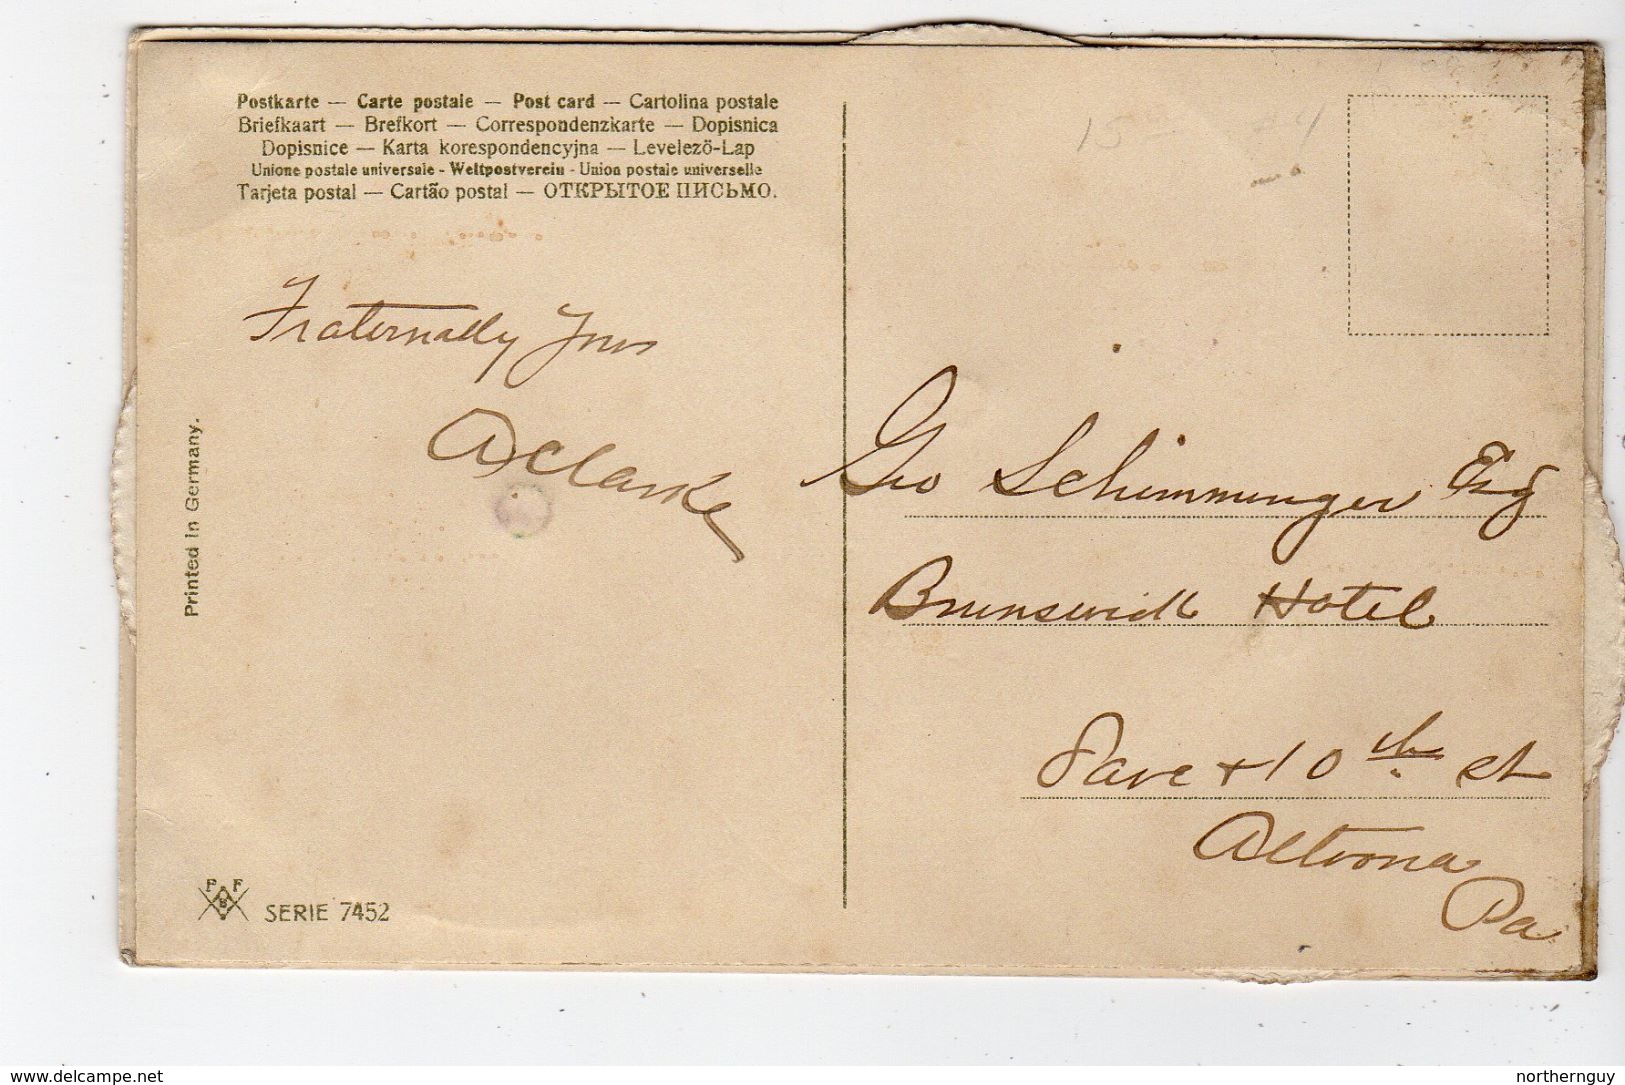 Postkarte — Carte postale — Post card — Cartolina postale
Briefkaart — Brefkort — Correspondenzkarte — Dopisnica
Dopisnice — Karta korespondencyjna — Levelezö-Lap
Unione postale universale - Weltpostverein - Union postale universelle
Tarjeta postal — Cartão postal — ОТКРЫТОЕ ПИСЬМО.
Fraternally Yours
A Clarke
Printed in Germany.
P F
B
SERIE 7452
15
Geo Schimminger Esq
Brunswick Hotel
8 ave + 10th st
Altoona
Pa
www.delcampe.net
northernguy